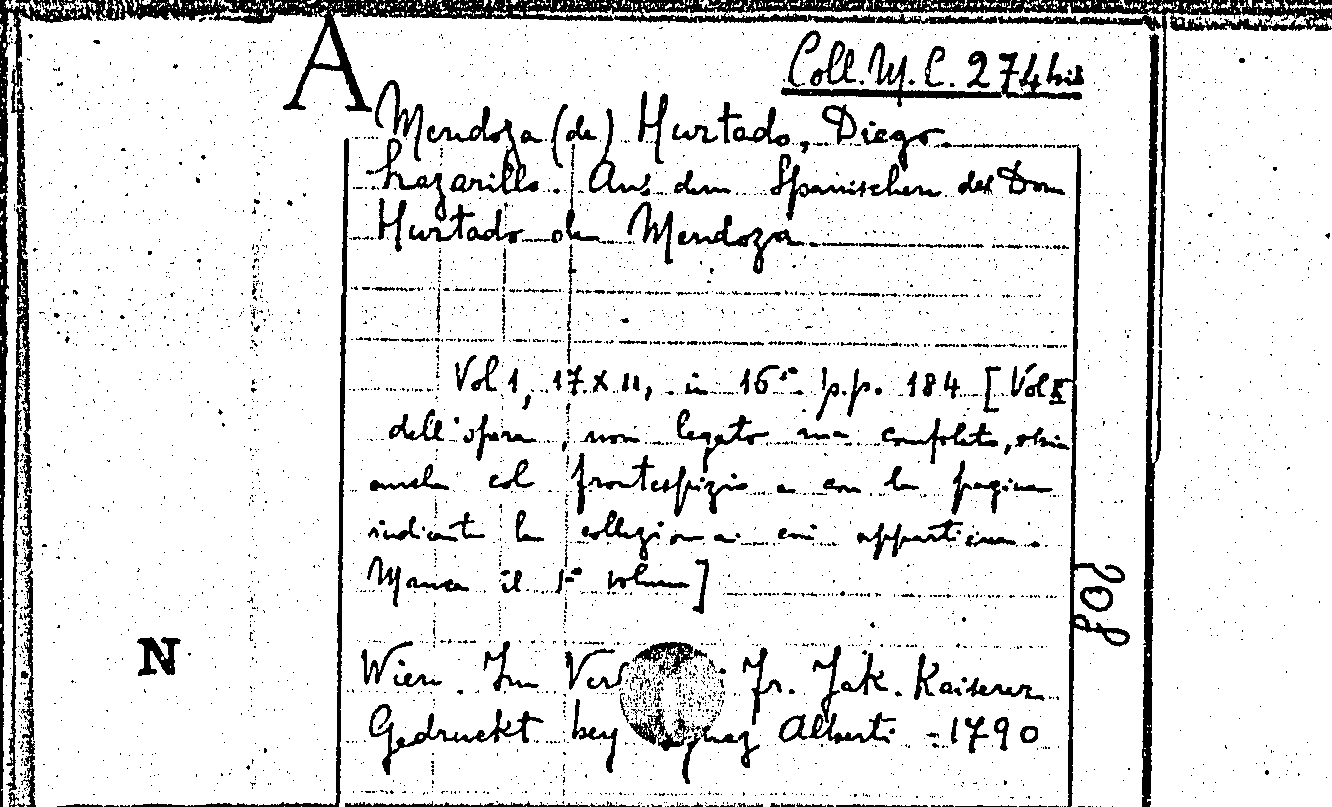 A
Coll. M. C. 274 bis
Mendoza (de) Hurtado, Diego.
Lazarillo. Aus dem Spanischen des Dom
Hurtado de Mendoza.
Vol 1, 17 x 11, in 16° p.p. 184 [Vol II
dell'opera, non legato ma completo,
anche col frontespizio e con la pagina
indicante la collezione a cui appartiene.
Manca il 1° volume]
Wien. Im Fr. Jak. Kaiserer
Gedruckt bey Alberti - 1790
N